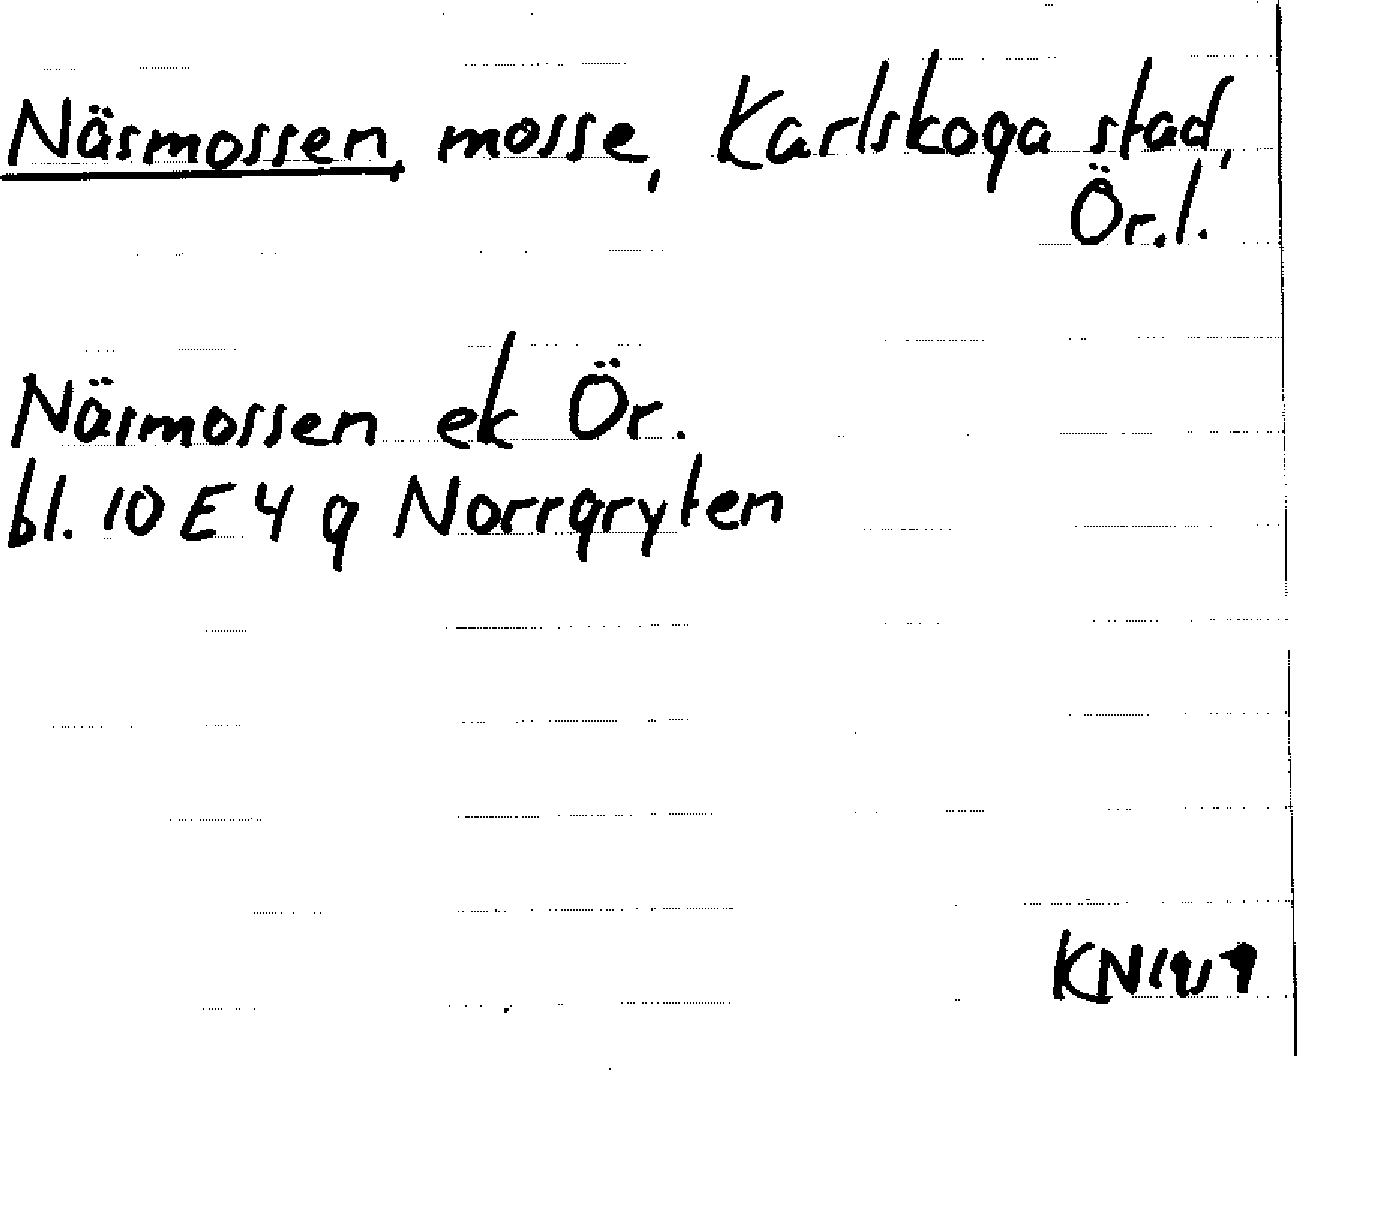 Näsmossen, mosse, Karlskoga stad,
Ör.l.
Näsmossen ek Ör.
bl. 10 E 4 g Norrgryten